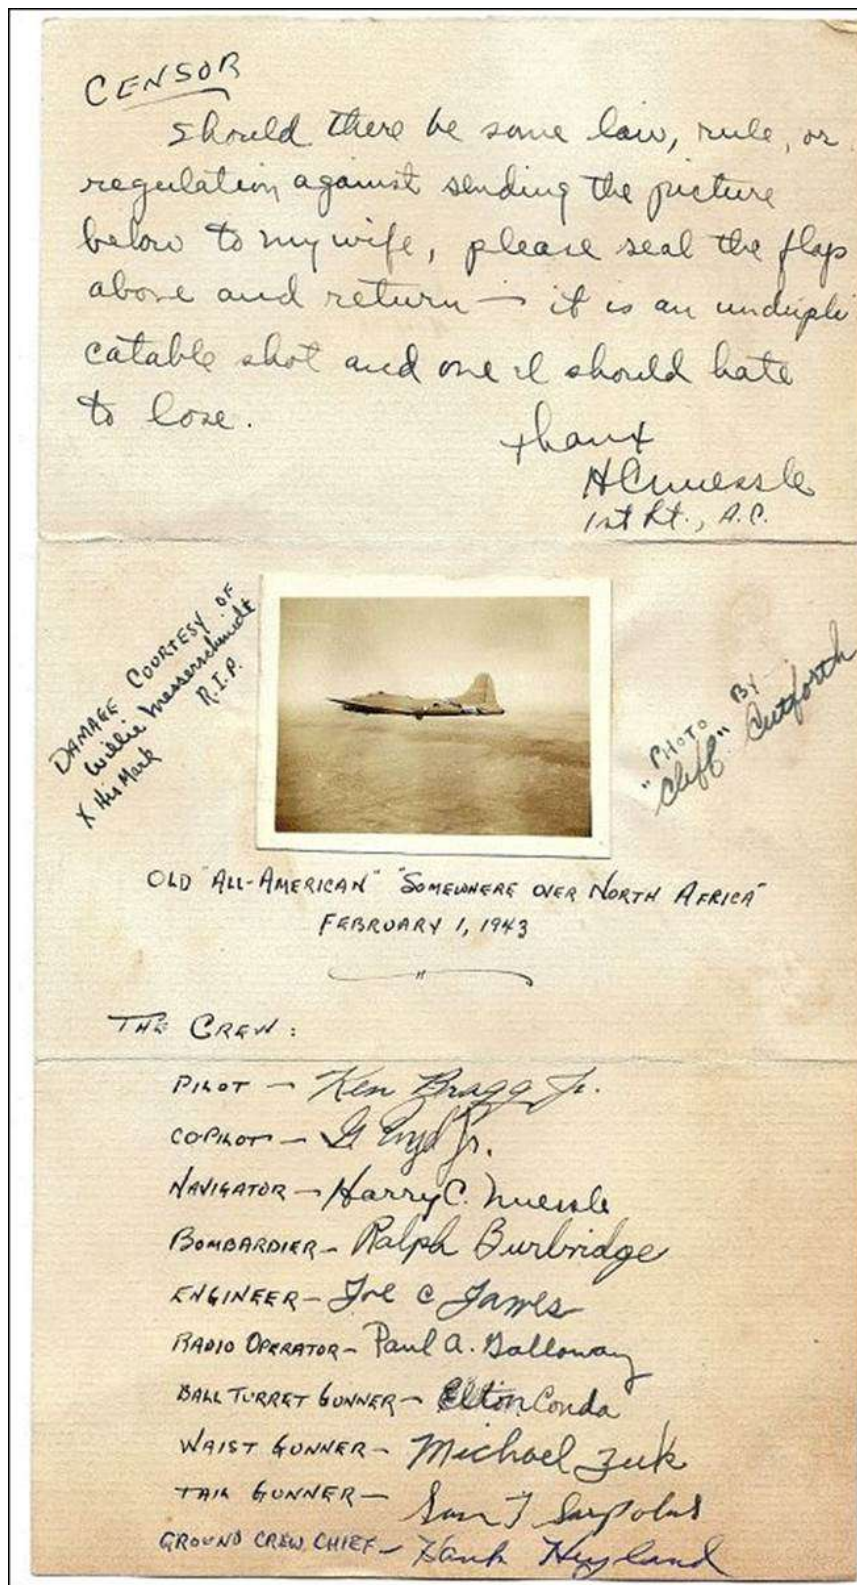 CENSOR
Should there be some law, rule, or
regulation against sending the picture
below to my wife, please seal the flap
above and return — it is an undupli
catable shot and one I should hate
to lose.
Thanx
HCNuessle
1st Lt., A.C.
DAMAGE COURTESY OF
Willie Messerschmidt
R.I.P.
X His Mark
PHOTO BY
"Cliff" Cutforth
OLD "ALL-AMERICAN" "SOMEWHERE OVER NORTH AFRICA"
FEBRUARY 1, 1943
"
THE CREW:
PILOT — Ken Bragg Jr.
COPILOT — Jr.
NAVIGATOR — Harry C. Nuessle
BOMBARDIER — Ralph Burbridge
ENGINEER — Joe C James
RADIO OPERATOR — Paul A. Galloway
BALL TURRET GUNNER — Elton Conda
WAIST GUNNER — Michael Zuk
TAIL GUNNER — Sam T Sarpolus
GROUND CREW CHIEF — Hank Hyland